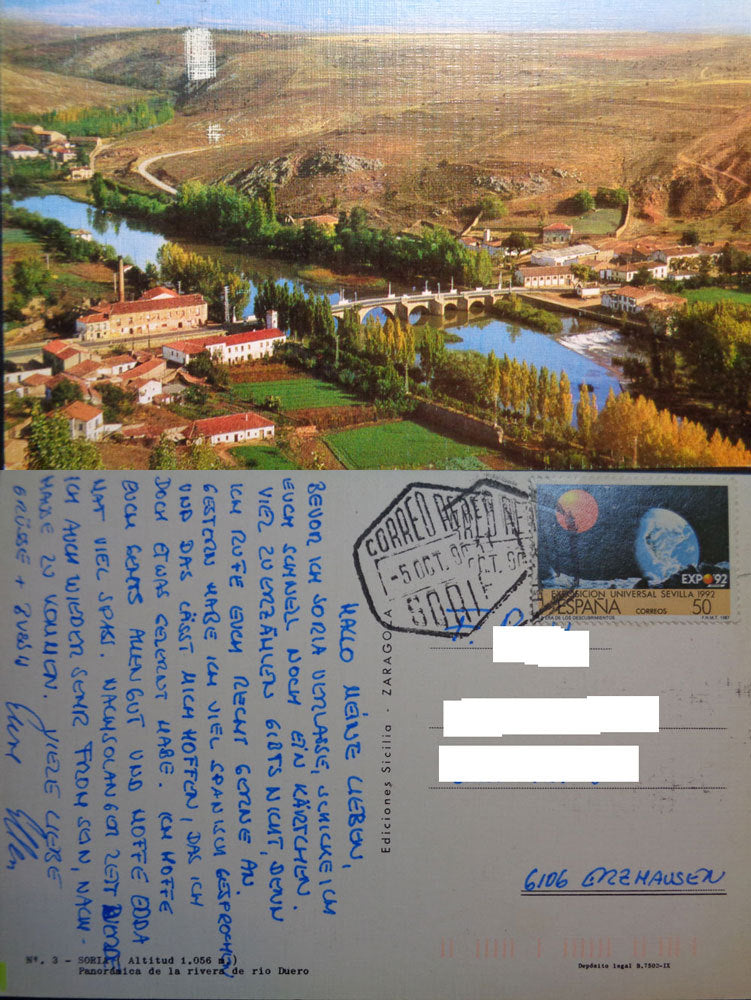 HALLO MEINE LIEBEN,
BEVOR ICH SORIA VERLASSE, SCHICKE ICH
EUCH SCHNELL NOCH EIN KÄRTCHEN.
VIEL ZU ERZÄHLEN GIBTS NICHT, DENN
ICH RUFE EUCH RECHT GERNE AN
GESTERN HABE ICH VIEL SPANISCH GESPROCHEN
UND DAS LÄSST MICH HOFFEN, DAS ICH
DOCH ETWAS GELERNT HABE. ICH HOFFE
EUCH GEHTS ALLEN GUT UND HOFFE EDDA
HAT VIEL SPAß. NACH SO LANGER ZEIT
ICH AUCH WIEDER SEHR FROH SEIN, NACH-
HAUSE ZU KOMMEN. VIELE LIEBE
GRÜSSE +
Ediciones Sicilia - ZARAGOZA
CORREO AEREO
-5 OCT. 90
SORIA
EXPO'92
EXPOSICION UNIVERSAL SEVILLA 1992
ESPAÑA CORREOS 50
ERA DE LOS DESCUBRIMIENTOS F.N.M.T. 1987
6106 ERZHAUSEN
Nº. 3 - SORIA Altitud 1.056 m.)
Panorámica de la rivera de rio Duero
Depósito legal B.7500-IX